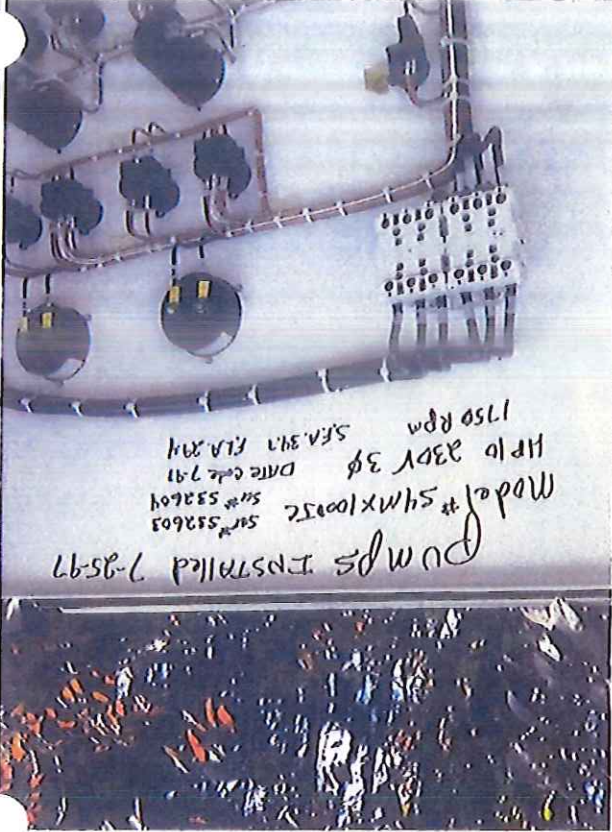 PUMPS INSTALLED 7-25-97
Model # S4MX1000JC Ser# 532603
Ser# 532604
HP 10 230V 3φ DATE code 7-97
1750 RPM S.F.A. 34.7 F.L.A. 29.4